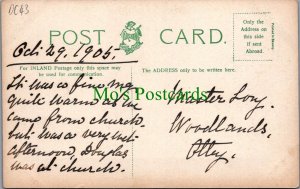 DC43
POST CARD.
Only the
Address on
this side
if sent
Abroad.
For INLAND Postage only this space may
be used for communication.
The ADDRESS only to be written here.
Oct. 29. 1905.
It was a fine mg
quite warm as we
came from church
but was a very wet
afternoon, Douglas
was at church.
Mo's Postcards
Master Long.
Woodlands.
Otley.